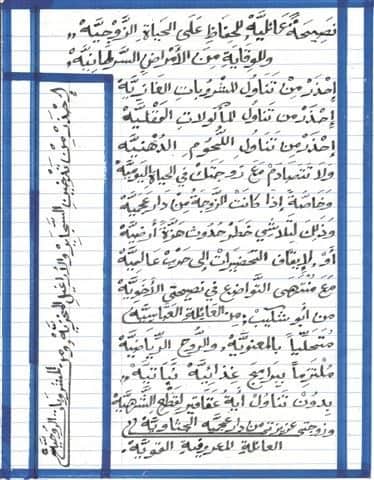 نَصِيحَةٌ عَائِلِيَّة لِلْحِفَاظِ عَلَى الْحَيَاةِ الزَّوْجِيَّة ,,
وللوِقَايَةِ مِنَ الأَمْرَاضِ السَّرَطَانِيَّة,
إحْذَرْ مِنْ تَنَاوُلِ المَشْرُوبَاتِ الغَازِيَّة
إحْذَرْ مِنْ تَنَاوُلِ المأكُولَاتِ المَقْلِيَّة
إحْذَرْ مِنْ تَنَاوُلِ اللُّحُومِ الدُّهْنِيَّة
ولا تَتَصَادَمْ مَعَ زَوجَتِكَ في الحَيَاةِ اليَوْمِيَّة
وَخَاصَةً إذا كانَتِ الزَّوجَةُ مِن دار عجمية
وَذَلِكَ لِتَلاشي خَطَرِ حُدُوثِ هَزَّة أرضِيَّة
أَو لإيقَافِ التَّحضِيرَاتِ إلى حَرْبٍ عالَمِيَّة
مَعَ مُنْتَهَى التَّوَاضُعِ في نَصِيحَتي الأَخَوِيَّة
من أبُو شكيب, من العائلة العباسية
مُتَحَلِّيَاً بِالْمَعْنَوِيَّة, والرُّوحِ الرِّيَاضِيَّة
مُلْتَزِماً بِبَرَامِجَ غِذَائِيَّة نَبَاتِيَّة,,
بِدُونِ تَنَاوُلِ أيَّة عَقَاقِير لِقَطْعِ الشَّهِيَّة
وزوجتي عزيزتي من دار عجمية
العائلة المعروفية القوية.
إحْذَرْ مِنْ تَدْخِينِ السَّجَايِر والأراغيل